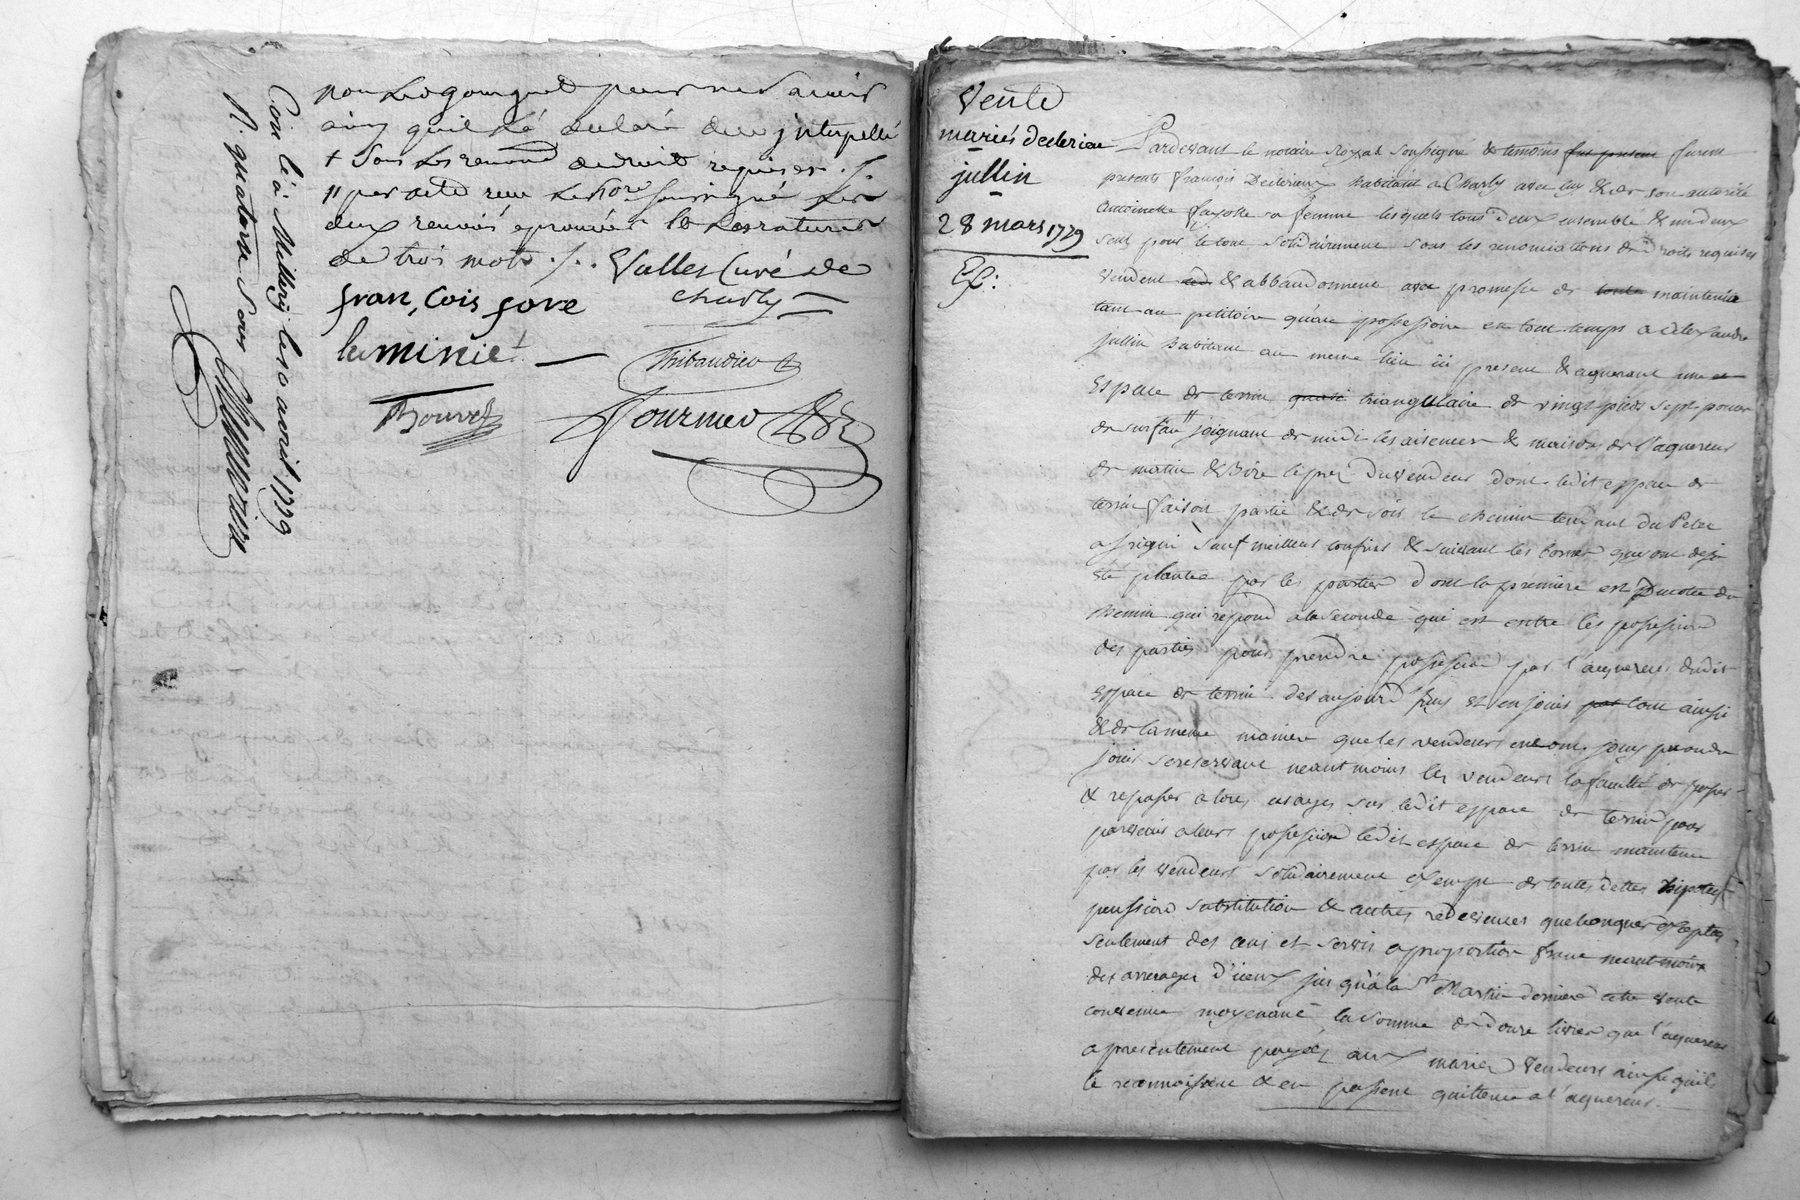 ainsy quil l'a declaré de ce jnterpellé
+ sous les renon.ons de droit requises ./.
" par acte reçu le no.re soussigné les
deux renvois aprouvés & les ratures
de trois mots ./. Valles Curé de
Charly
fran,Cois fore
laminie
Thibaudier
Bouvet
Fourmeo
Con.lé à Millery le 10 avril 1779
R. quatorse sous
Vente
mariés declerieu
jullin
28 mars 1779
Ex:
Pardevant le notaire Royal soussigné & temoins fut present furent
presents François Declerieux habitant a Charly avec luy & de son autorité
Antoinette fayolle sa femme lesquels tous deux ensemble & un deux
seul pour le tout solidairement sous les renonciations de droits requises
vendent & abbandonnent avec promesse de toute maintenüe
tant au petitoire qu'au possessoire en tout temps a Alexandre
jullin habitant au meme lieu ici present & aquereur un
espace de terrin quasi triangulaire de vingt pieds sept pouces
de surface " joignant de midi les aisences & maison de l'aquereur
de matin & bize le prez du vendeur dont ledit espace de
terrin faisoit partie & de soir le chemin tendant du Pelet
a jrigni sauf meilleurs confins & suivant les bornes qui ont deja
été plantés par les parties dont la premiere est du coté du
chemin qui repond a la seconde qui est entre les possessions
des parties pour prendre possession par l'aquereur dudit
espace de terrin des aujourd'huy et en jouir par tout ainsi
& de la meme maniere que les vendeurs en ont jouy pu ou du
jouir se reservant neantmoins les vendeurs la faculté de passer
& repasser a tous usages sur ledit espace de terrin pour
parvenir a leurs possessions ledit espace de terrin maintenu
par les vendeurs solidairement exempt de toutes dettes hipoteq.
pension substitution & autres redevances quelconques exceptés
seulement des cens et servis a proportion franc neantmoins
des arrerages d'iceux jus qu'à la St Martin derniere cette vente
convenue moyenant la somme de douze livres que l'aquereur
a presentement payée aux mariés vendeurs ainsi qu'il
le reconnoissent & en passent quittance a l'aquereur.